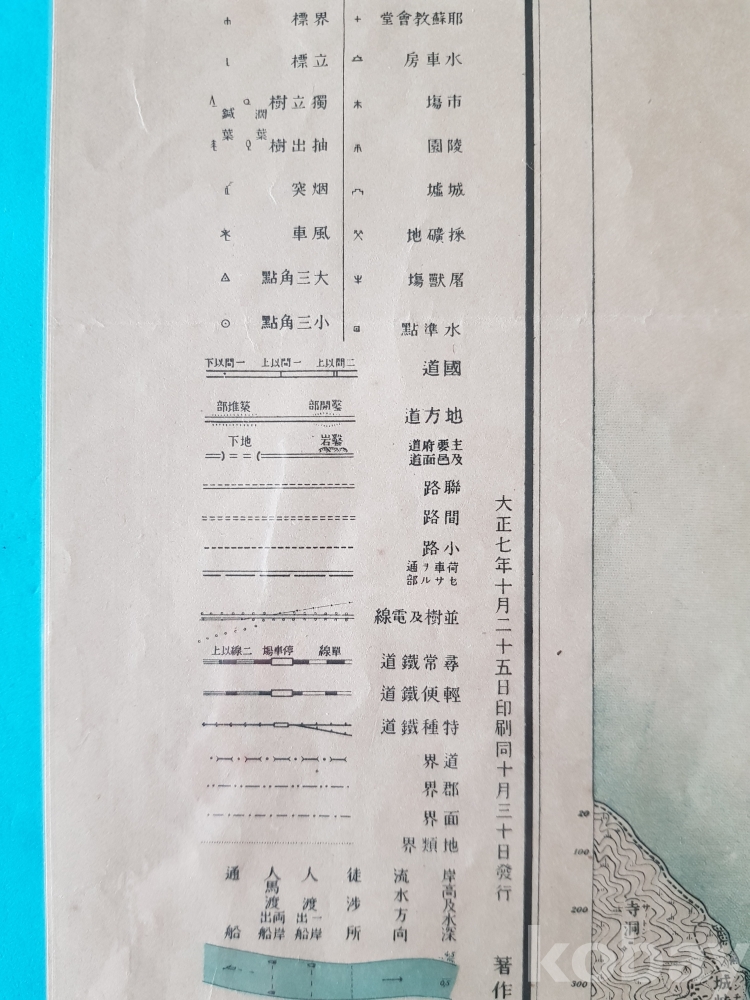 耶蘇教會堂
水車房
市塲
陵園
城墟
採礦地
屠獸塲
水準點
界標
立標
獨立樹
濶葉
鍼葉
抽出樹
烟突
風車
大三角點
小三角點
國道
二間以上
一間以上
一間以下
地方道
鑿開部
築堆部
主要府道
及邑面道
鑿岩
地下
聯路
間路
小路
荷車ヲ通
セサル部
並樹及電線
尋常鐵道
單線
停車塲
二線以上
輕便鐵道
特種鐵道
道界
郡界
面界
地類界
岸高及水深
流水方向
徒涉所
人渡船
一岸出
人馬渡船
兩岸出
通船
大正七年十月二十五日印刷同十月三十日發行
著作
20
100
200
300
寺洞
城